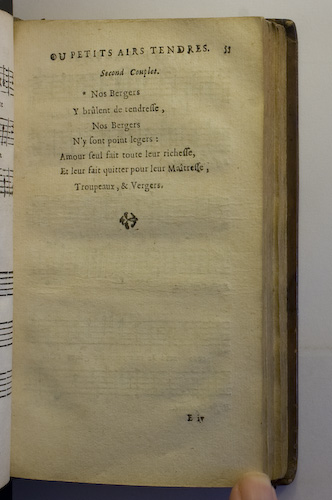 OU PETITS AIRS TENDRES. 55
Second Couplet.
* Nos Bergers
Y brûlent de tendresse,
Nos Bergers
N'y sont point legers :
Amour seul fait toute leur richesse,
Et leur fait quitter pour leur Maîtresse,
Troupeaux, & Vergers.
E iv